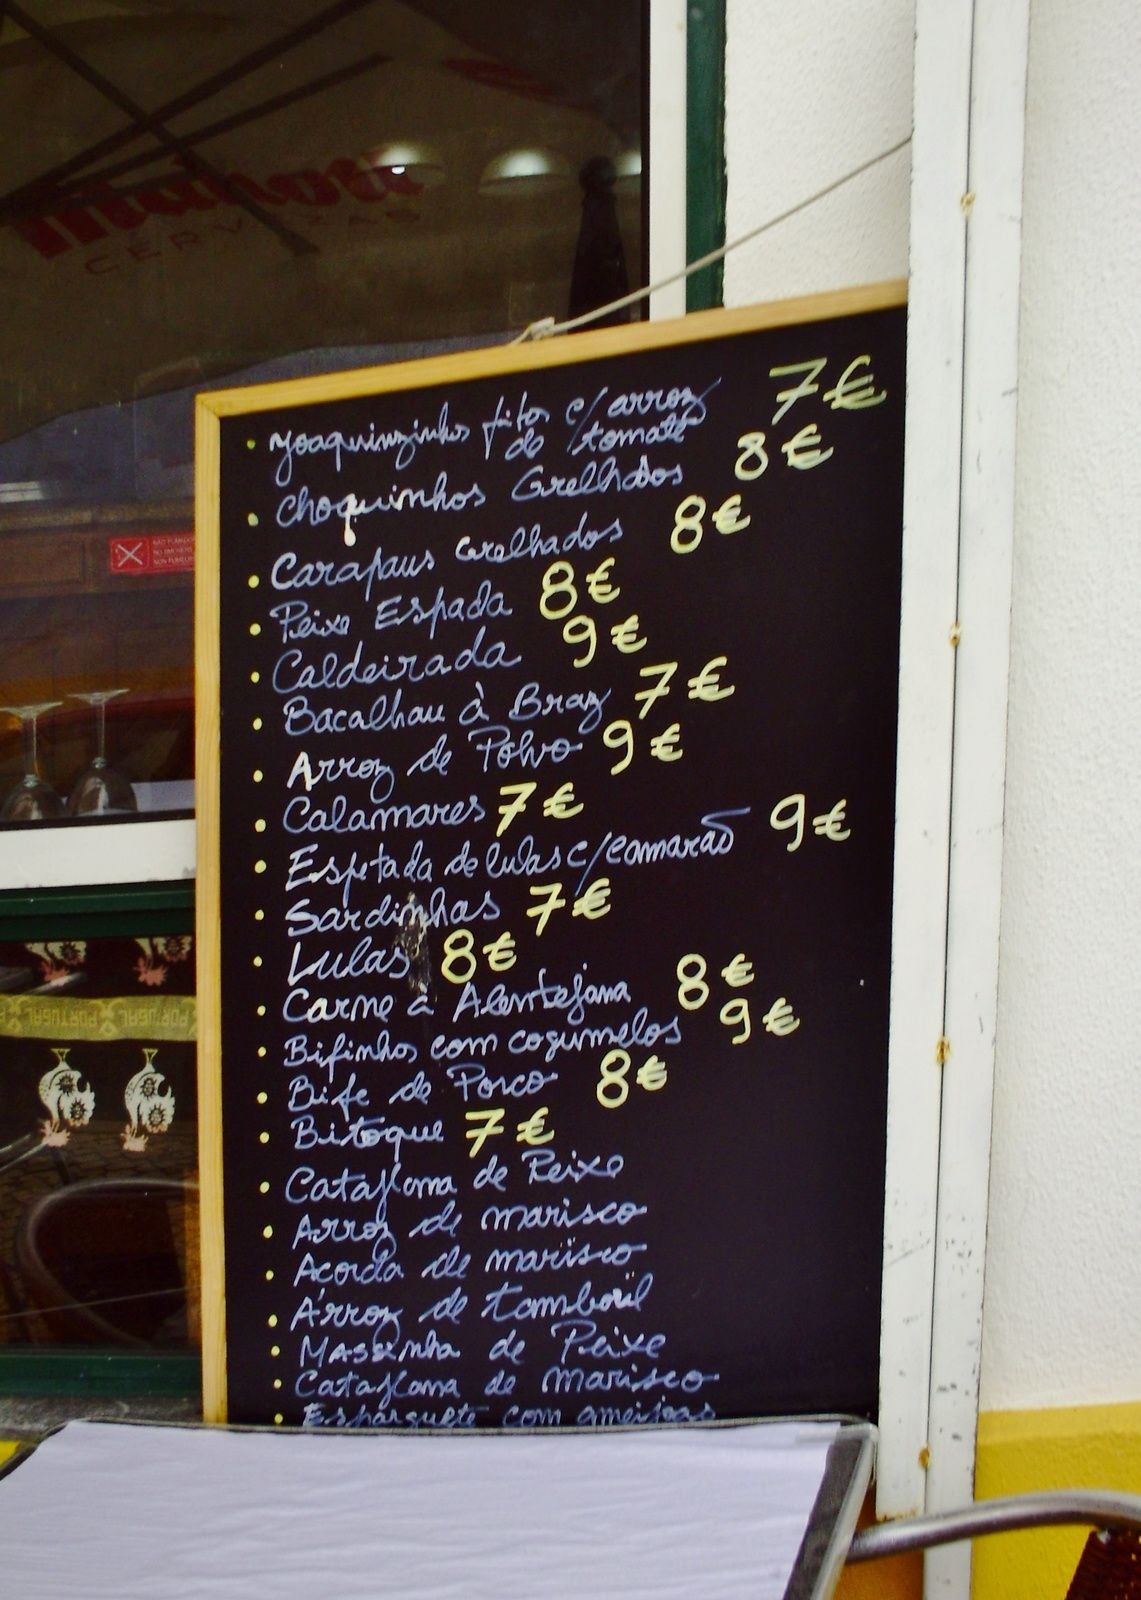 Mahou
CERVEZAS
NÃO FUMADORES
NO SMOKERS
NON FUMEURS
Joaquinzinhos fitos c/arroz 7€
de tomate
Choquinhos Grelhados 8€
Carapaus Grelhados 8€
Peixe Espada 8€
Caldeirada 9€
Bacalhau à Braz 7€
Arroz de Polvo 9€
Calamares 7€
Espetada de lulas c/camarão 9€
Sardinhas 7€
Lulas 8€
Carne à Alentejana 8€
Bifinhos com cogumelos 9€
Bife de Porco 8€
Bitoque 7€
Cataplana de Peixe
Arroz de marisco
Acorda de marisco
Arroz de tamboril
Massinha de Peixe
Cataplana de marisco
Esparguete com ameijoas
PORTUGAL PORTUGAL